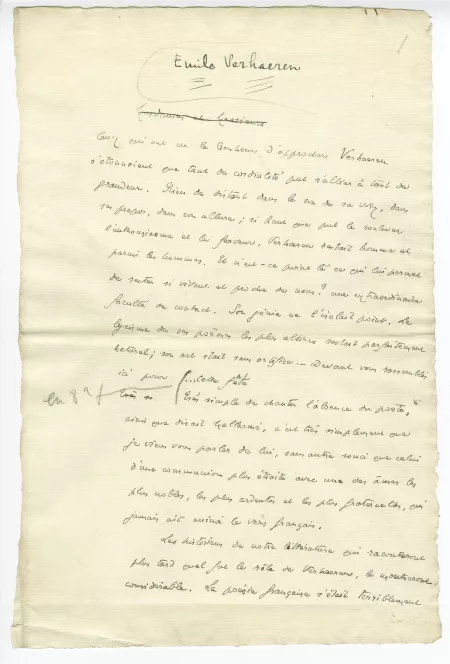 1
Emile Verhaeren
Ceux qui ont eu le bonheur d'approcher Verhaeren
s'étonnaient que tant de cordialité pût s'allier à tant de
grandeur. Rien de distant dans le son de sa voix, dans
ses propos, dans son allure ; si haut que pût le soulever
l'enthousiasme et la ferveur, Verhaeren restait homme et
parmi les hommes. Et n'est-ce point là ce qui lui permet
de rester si vivant et proche de nous ? une extraordinaire
faculté de contact. Son génie ne l'isolait point. Le
lyrisme de ses poèmes les plus altiers restait parfaitement
naturel ; son art était sans artifice. — Devant vous rassemblés
ici pour cette fête
en 8
très simple de chanter l'absence du poète,
ainsi que disait Mallarmé, c'est très simplement que
je viens vous parler de lui, sans autre souci que celui
d'une communion plus étroite avec une des âmes les
plus nobles, les plus ardentes et les plus fraternelles, qui
jamais ait animé le vers français.
Les historiens de notre littérature qui raconteront
plus tard quel fut le rôle de Verhaeren, le montreront
considérable. La poésie française s'était terriblement